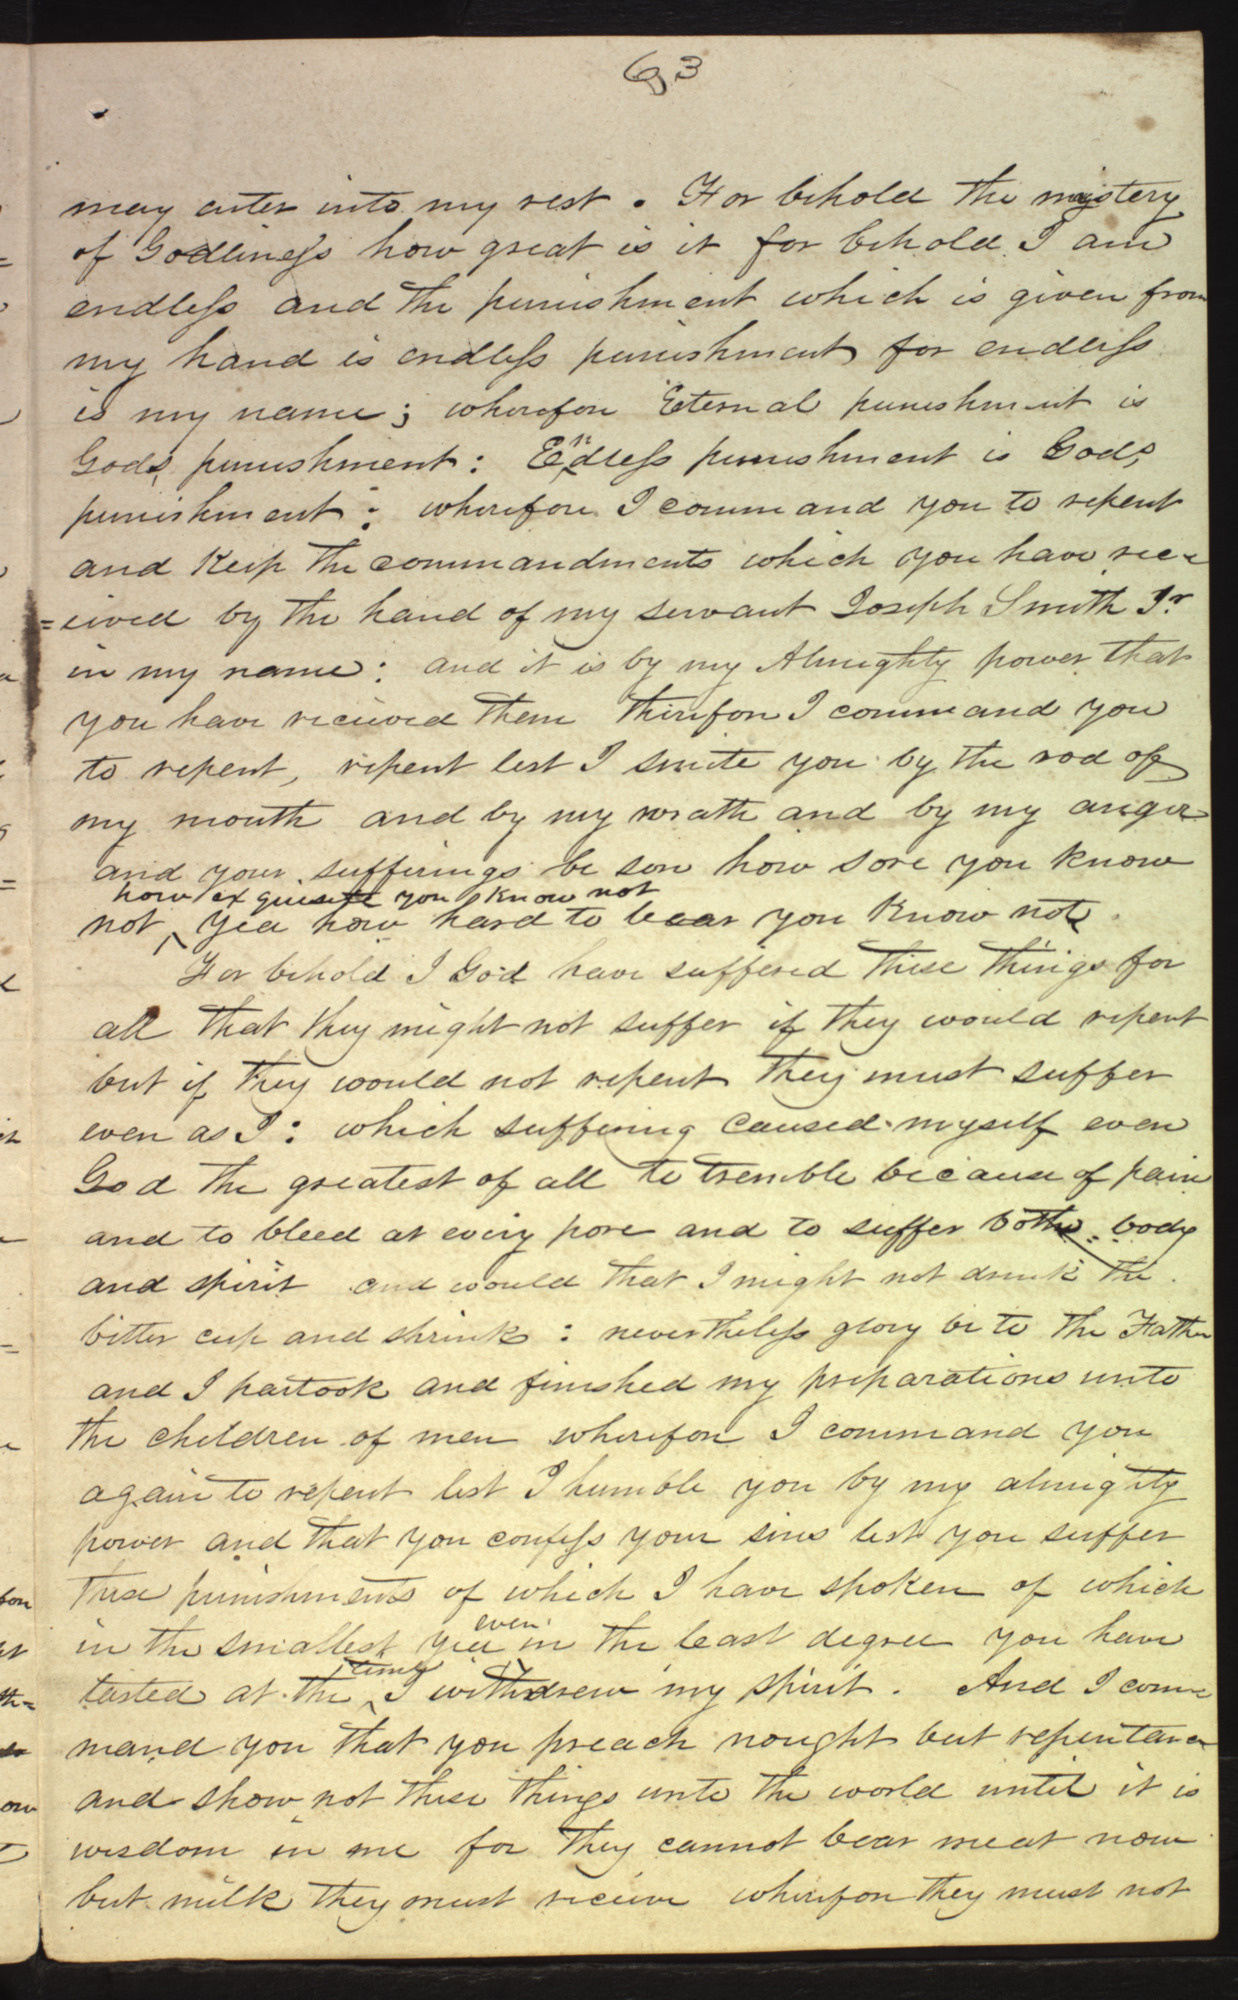 63
may enter into my rest. For behold the mystery
of Godliness how great is it for behold I am
endless and the punishment which is given from
my hand is endless punishment for endless
is my name; wherefore Eternal punishment is
Gods punishment: Endless punishment is Gods
punishment: wherefore I command you to repent
and Keep the commandments which you have rec=
=eived by the hand of my servant Joseph Smith Jr
in my name: and it is by my Almighty power that
you have recieved them therefore I command you
to repent, repent lest I smite you by the rod of
my mouth and by my wrath and by my anger
and your sufferings be sore how sore you know
how exquisite you know not
not yea how hard to bear you Know not.
For behold I God have suffered these things for
all that they might not suffer if they would repent
but if they would not repent they must suffer
even as I: which suffering caused myself even
God the greatest of all to tremble because of pain
and to bleed at every pore and to suffer both body
and spirit and would that I might not drink the
bitter cup and shrink: nevertheless glory be to the Father
and I partook and finished my preparations unto
the children of men wherefore I command you
again to repent lest I humble you by my almighty
power and that you confess your sins lest you suffer
these punishments of which I have spoken of which
in the smallest yea even in the least degree you have
tasted at the time I withdrew my spirit. And I com
mand you that you preach nought but repentance
and show not these things unto the world until it is
wisdom in me for they cannot bear meat now
but milk they must recieve wherefore they must not